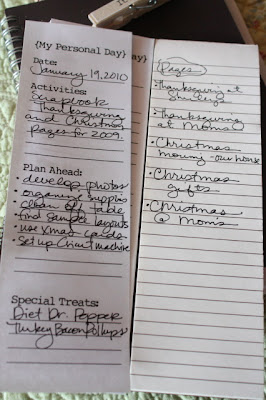 {My Personal Day}
Date:
January 19, 2010
Activities:
Scrapbook
Thanksgiving
and Christmas
pages for 2009.
Plan Ahead:
• develop photos
• organize supplies
• clean off table
• find sample layouts
• use Xmas cards
• Set up Cricut machine
Special Treats:
Diet Dr. Pepper
Turkey Bacon Rollups
Pages
• Thanksgiving at
Shirley's
• Thanksgiving
at Mom's
• Christmas
morning - our house
• Christmas
gifts
• Christmas
@ Mom's